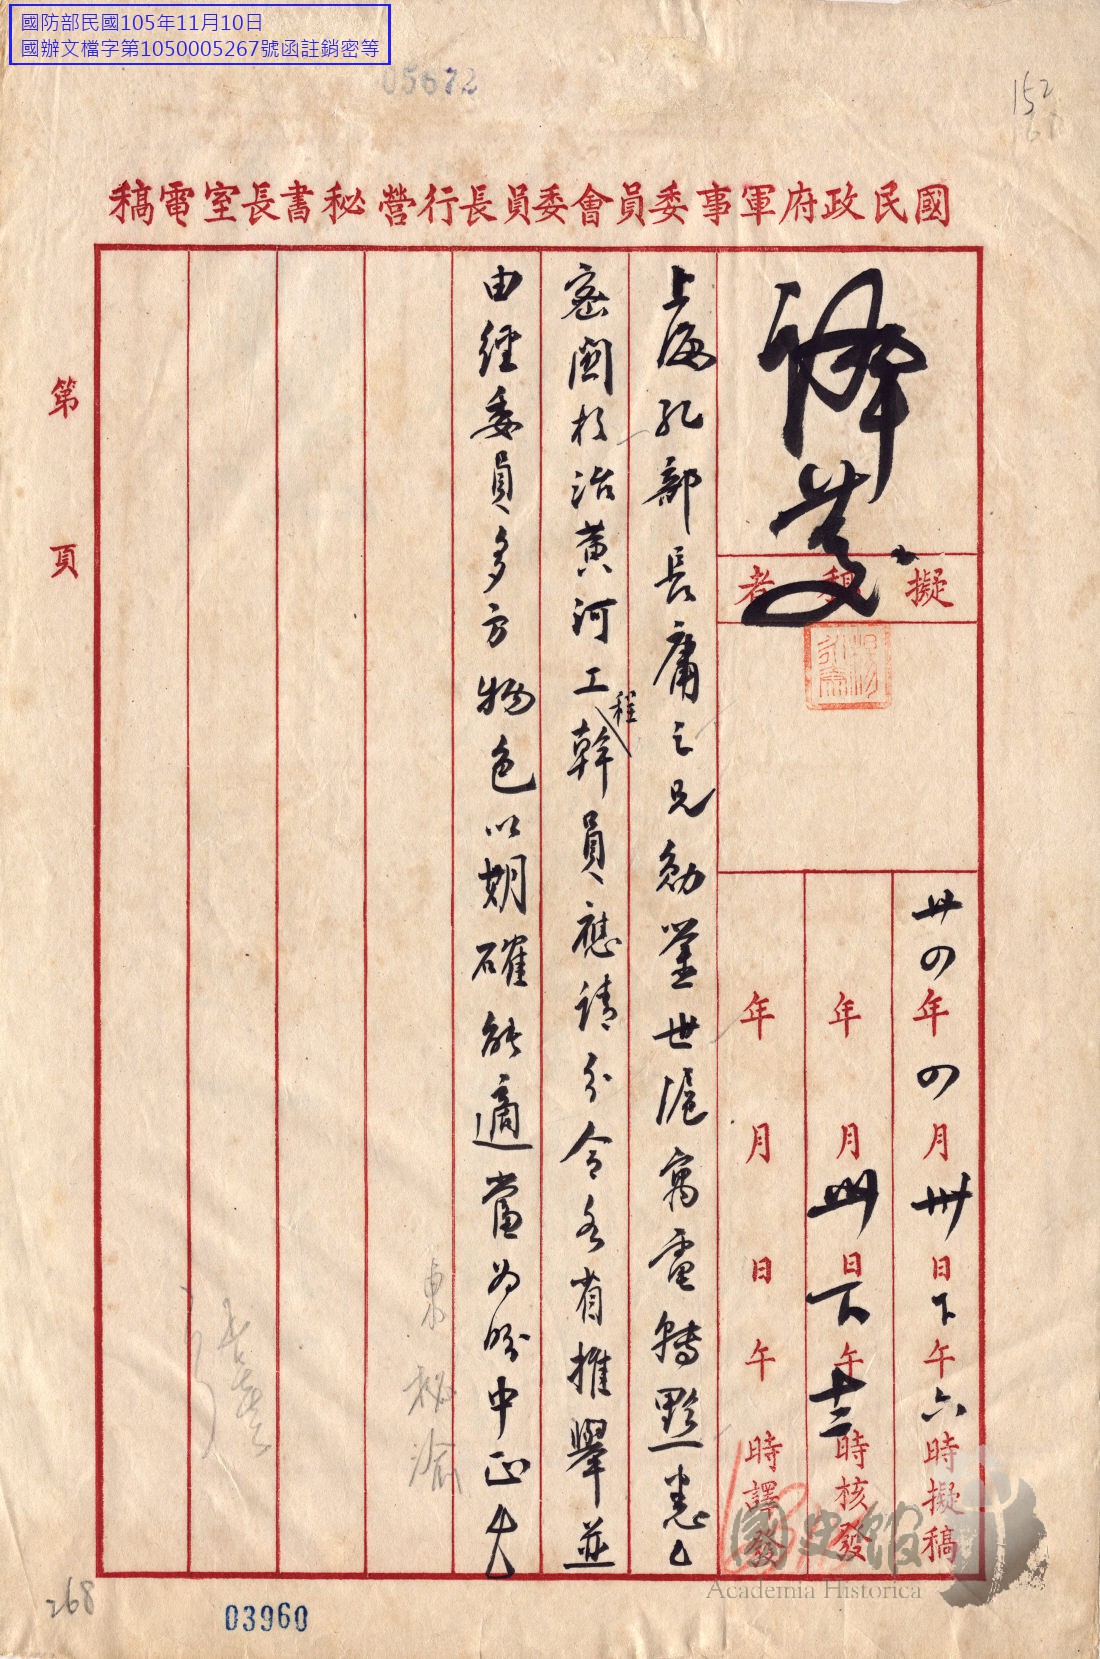 國防部民國105年11月10日
國辦文檔字第1050005267號函註銷密等
05672
152
國民政府軍事委員會委員長行營秘書長室電稿
譯發
擬稿者
卅四年四月卅日下午六時擬稿
年月卅日下午十二時核發
年月日午時譯發
上海孔部長庸之兄勛鑒世滬寓電轉黔悉
密關於治黃河工程幹員應請分令各省推舉並
由經委員多方物色以期確能適當為盼中正
東秘渝
第 頁
268
03960
國史館
Academia Historica